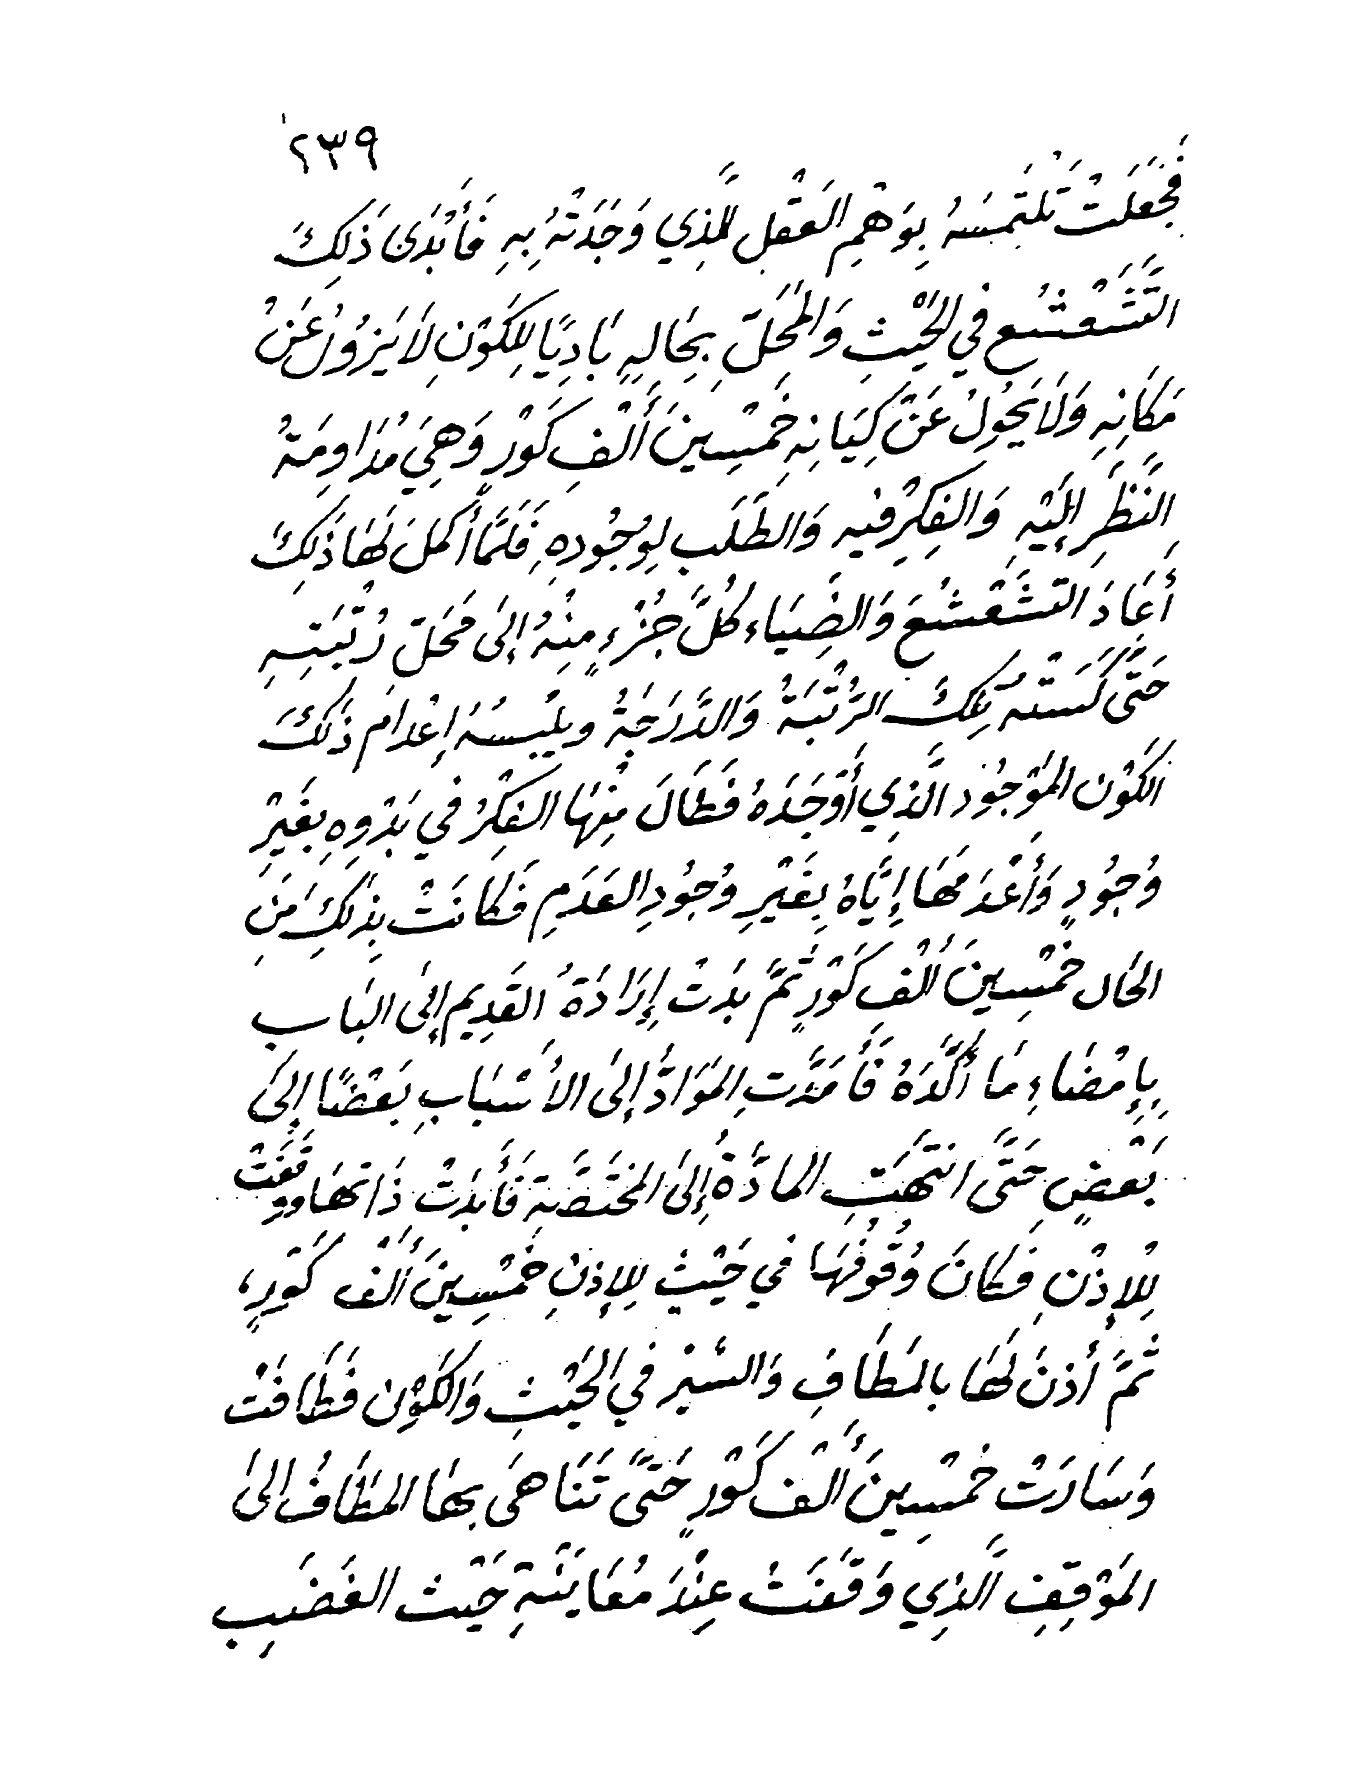 ٢٣٩
فَجَعَلَتْ تَلْتَمِسَهُ بِوَهْمِ العَقْلِ للَّذِي وَجَدَتْهُ بِهِ فَأَبْدَى ذَلِكَ
التَّشَعْشُع فِي الحَيْثِ وَالمَحَلِّ بِحَالِهِ بَادِيًا لِلكَوْنِ لاَ يَزُولُ عَنْ
مَكَانِهِ وَلاَ يَحُولُ عَنْ كِيَانِهِ خَمْسِينَ أَلْفِ كَوْرٍ وَهِيَ مُدَاوِمَةُ
النَّظَرِ إِلَيْهِ وَالفِكْرِ فيهِ وَالطَلَب لِوُجُودِهِ فَلَمَّا أَكمَلَ لَهَا ذَلِكَ
أَعَادَ التشَعْشُعَ وَالضِيَاءَ كُلَّ جُزْءٍ مِنْهُ إلىَ مَحَلّ رُتْبَتِهِ
حَتَّى كَسَتْهُ تِلكَ الرُتْبَةُ وَالدَّرَجَةُ ويلبسُهُ إعْدامَ ذَلكَ
الكَوْن المَوْجُود الَّذِي أَوْجَدَهُ فَطَالَ مِنْهَا الفِكْرُ في بَدْوِهِ بغَيْرِ
وُجُودٍ وَأَعْدَمَهَا إيَّاهُ بِغَيْرِ وُجُودِ العَدَمِ فَكَانَتْ بِذَلِكَ مِنَ
الحَال خَمْسِينَ أَلْفِ كَوْرٍ ثُمَّ بَدَتْ إرَادَةُ القَدِيم إلَى البَاب
بِإمْضَاءِ مَا أَكَّدَهُ فَأَمَدَّتِ المَوَادَّ إلىَ الأَسْبَابِ بَعْضًا إلىَ
بَعْضٍ حَتَّى انْتَهَتِ المادَّةُ إلىَ المُختَصَّةِ فَأَبدَتْ ذَاتهَا وَوقَفَتْ
لِلإِذْنِ فَكانَ وُقُوفُهَا في حَيْثِ الإِذنِ خَمْسِينَ أَلْفَ كَوْرٍ،
ثُمَّ أُذِنَ لَهَا بالمَطَافِ وَالسَيْرِ فيِ الحَيْثِ وَالكَوْنِ فَطَافَتْ
وَسَارَتْ خَمْسِينَ أَلْفَ كَوْرٍ حَتَّى تَنَاهَى بِهَا المَطَافُ الىَ
المَوْقِفِ الَّذِي وَقَفَتْ عِنْدَ مُعَايَنَةِ حَيْثِ الغَضَبِ